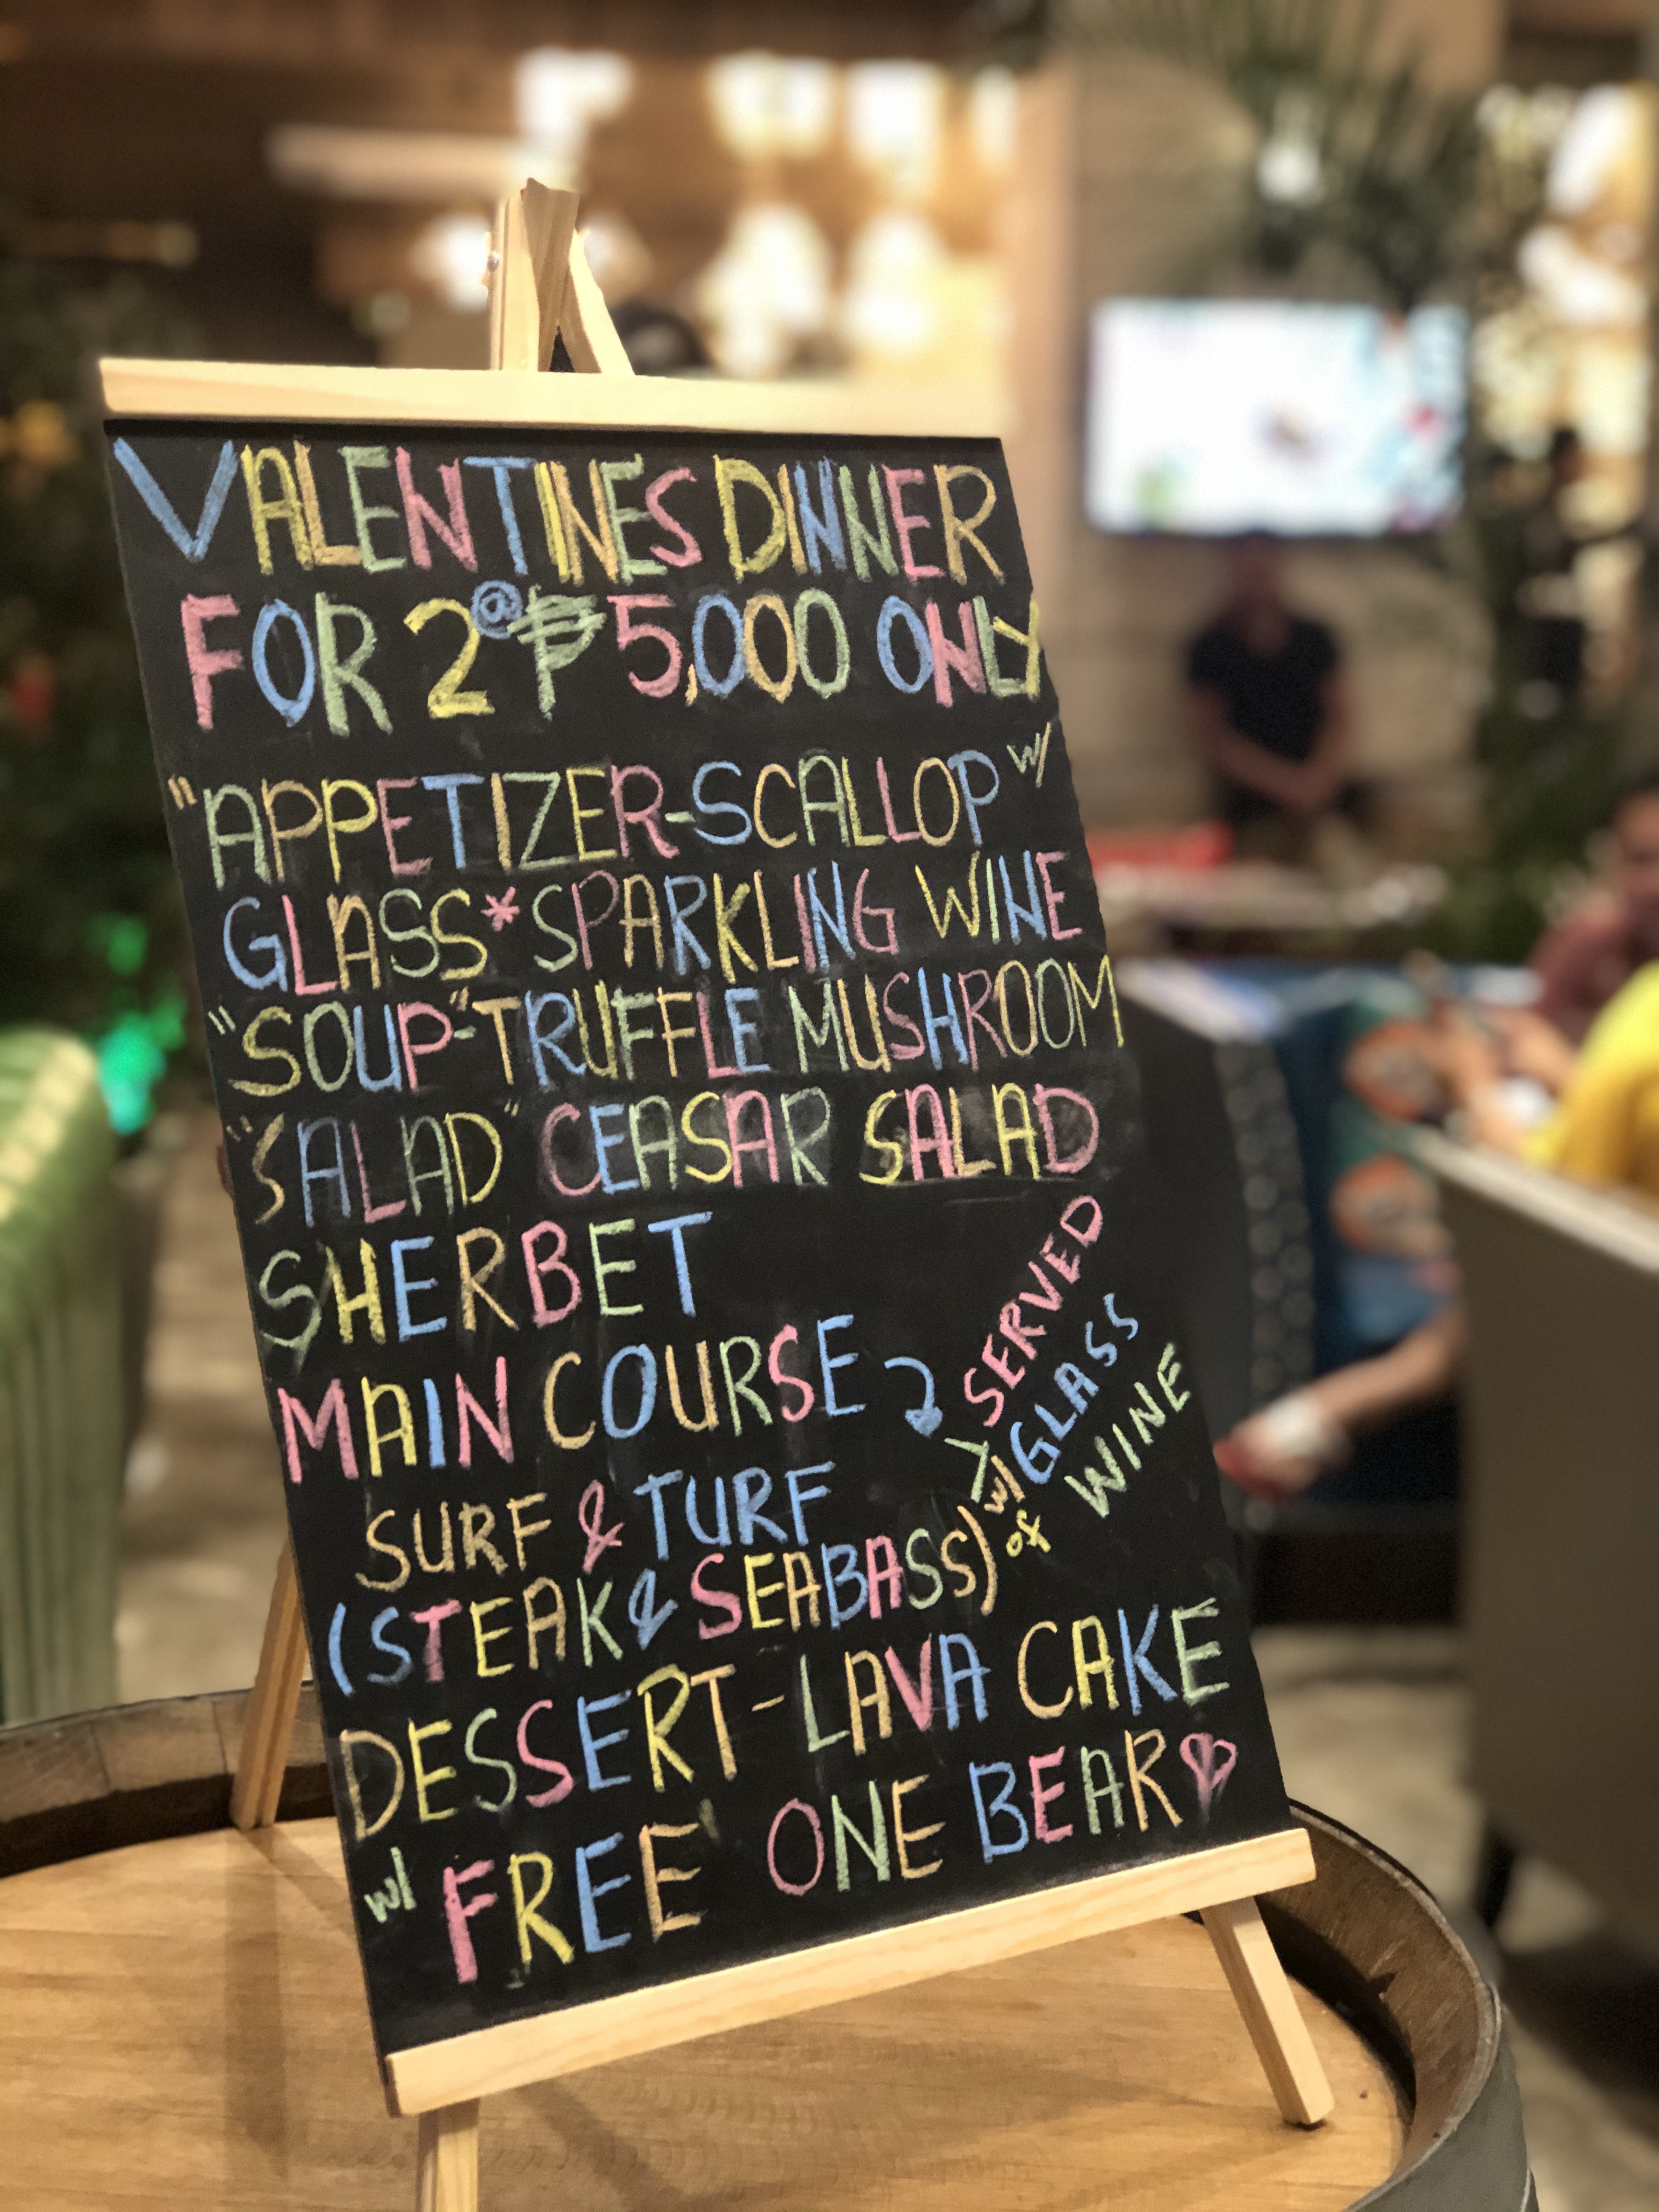 VALENTINES DINNER
FOR 2 @ ₱ 5,000 ONLY
"APPETIZER-SCALLOP w/
GLASS*SPARKLING WINE
"SOUP"-TRUFFLE MUSHROOM
"SALAD" CEASAR SALAD
SHERBET
MAIN COURSE
SURF & TURF
(STEAK & SEABASS)
SERVED
w/ GLASS
of WINE
DESSERT-LAVA CAKE
w/ FREE' ONE BEAR